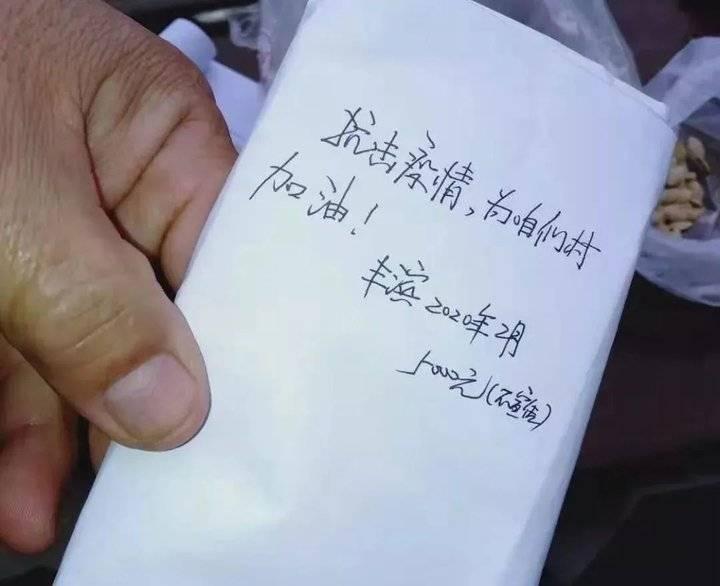 抗击疫情，为咱们村
加油！
丰滨 2020年2月
5000元